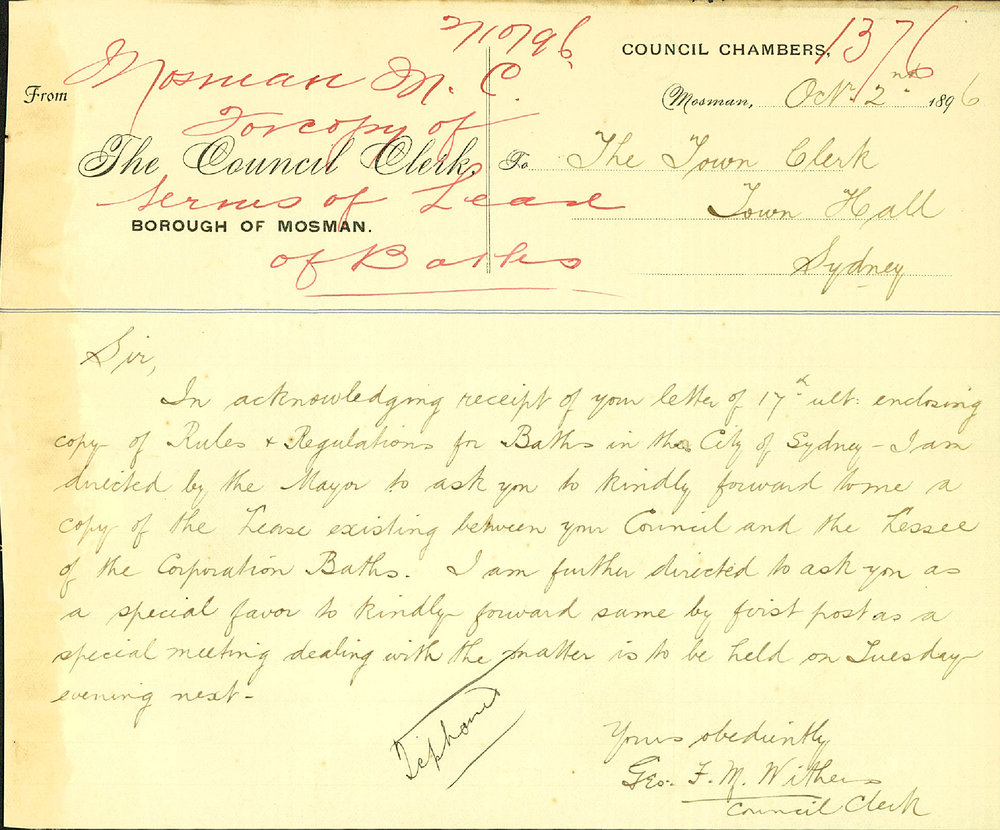 2/10/96
COUNCIL CHAMBERS, 1376
From Mosman M. C.
Mosman, Oct. 2nd 1896
For copy of
The Council Clerk, To The Town Clerk
terms of Lease
Town Hall
BOROUGH OF MOSMAN.
of Baths
Sydney
Sir,
In acknowledging receipt of your letter of 17th ult: enclosing
copy of Rules & Regulations for Baths in the City of Sydney - I am
directed by the Mayor to ask you to kindly forward to me a
copy of the Lease existing between your Council and the Lessee
of the Corporation Baths. I am further directed to ask you as
a special favor to kindly forward same by first post as a
special meeting dealing with the matter is to be held on Tuesday
evening next -
Yours obediently
Geo. F. M. Withers
Council Clerk